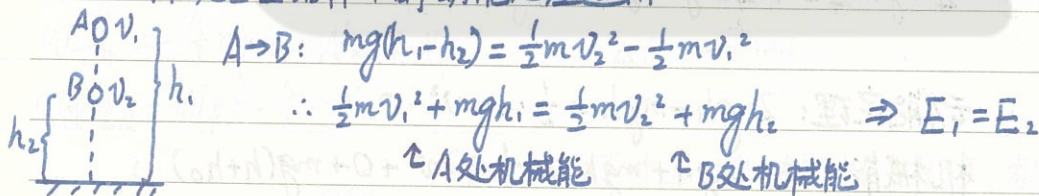 A v₁
B v₂
h₁
h₂
A→B: mg(h₁-h₂) = ½mv₂² - ½mv₁²
∴ ½mv₁² + mgh₁ = ½mv₂² + mgh₂ ⇒ E₁ = E₂
↑A处机械能 ↑B处机械能